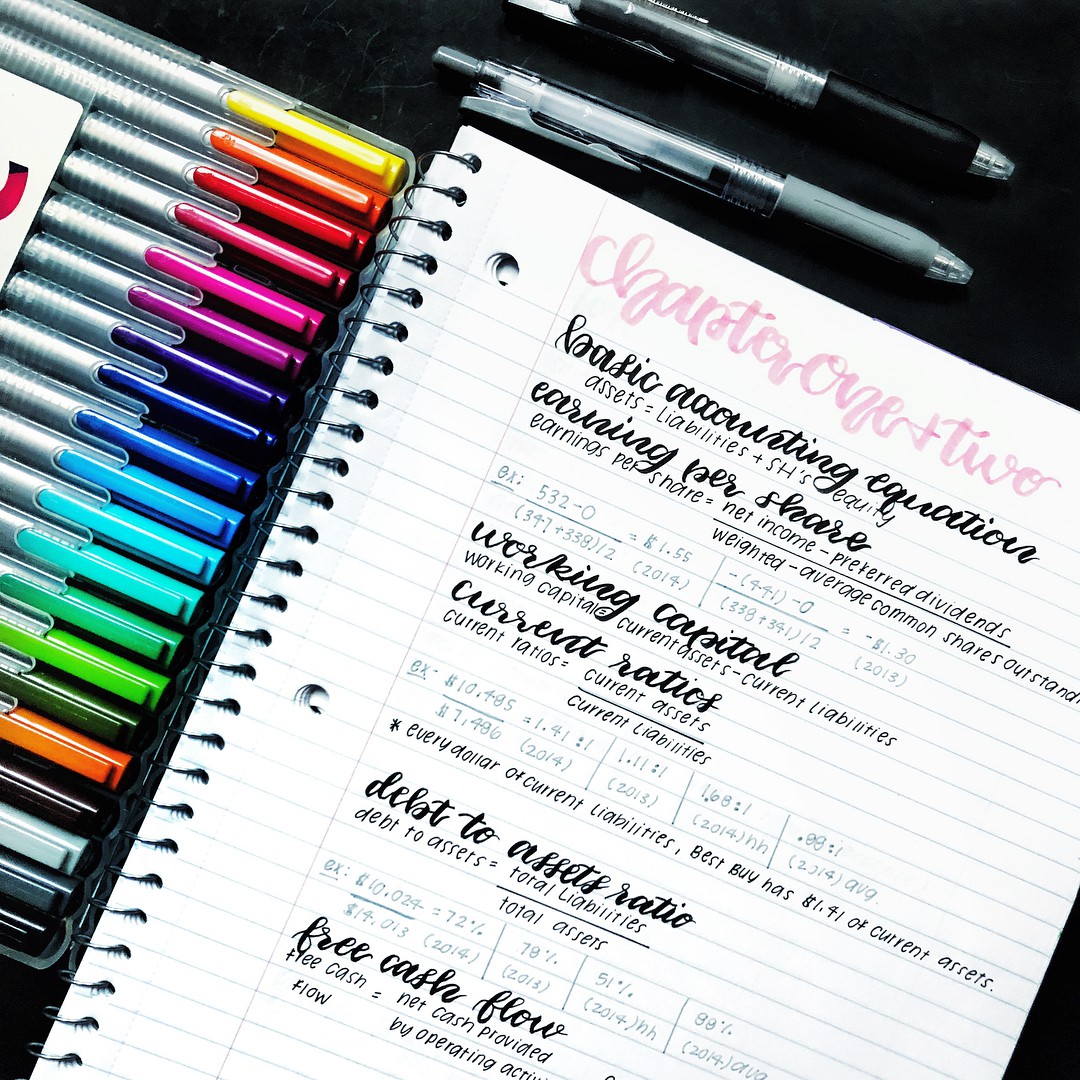 chapter one + two
basic accounting equation
assets = liabilities + SH's equity
earning per share
earnings per share = net income - preferred dividends
weighted - average common shares outstandi
ex: 532-0 -(441)-0
(347+338)/2 = $1.55 (2014) (338+341)/2 = -$1.30 (2013)
working capital
working capital = current assets - current liabilities
current ratios
current ratios = current assets
current liabilities
ex- $10,485 = 1.41:1 1.11:1 1.68:1 .98:1
$7,486 (2014) (2013) (2014)hh (2014)avg.
* every dollar of current liabilities, Best Buy has $1.41 of current assets.
debt to assets ratio
debt to assets = total liabilities
total assets
ex: $10,024 = 72% 78% 51% 88%
$14,013 (2014) (2013) (2014)hh (2014)avg
free cash flow
free cash flow = net cash provided
by operating activi